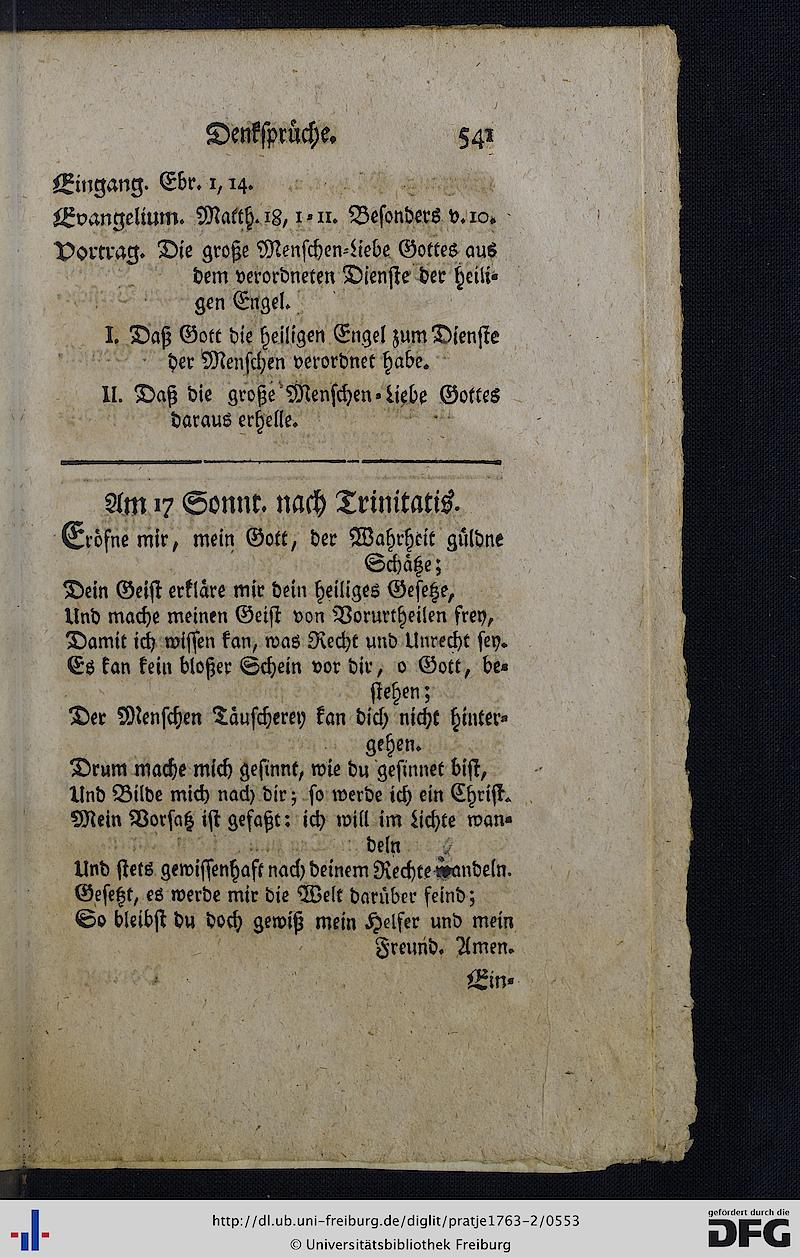 Denksprüche. 541
Eingang. Ebr. 1, 14.
Evangelium. Matth. 18, 1=11. Besonders v. 10.
Vortrag. Die große Menschen=Liebe Gottes aus
dem verordneten Dienste der heili=
gen Engel.
I. Daß Gott die heiligen Engel zum Dienste
der Menschen verordnet habe.
II. Daß die große Menschen=Liebe Gottes
daraus erhelle.
Am 17 Sonnt. nach Trinitatis.
Eröfne mir, mein Gott, der Wahrheit güldne
Schätze;
Dein Geist erkläre mir dein heiliges Gesetze,
Und mache meinen Geist von Vorurtheilen frey,
Damit ich wissen kan, was Recht und Unrecht sey.
Es kan kein bloßer Schein vor dir, o Gott, be=
stehen;
Der Menschen Täuscherey kan dich nicht hinter=
gehen.
Drum mache mich gesinnt, wie du gesinnet bist,
Und Bilde mich nach dir; so werde ich ein Christ.
Mein Vorsatz ist gefaßt: ich will im Lichte wan=
deln
Und stets gewissenhaft nach deinem Rechte wandeln.
Gesetzt, es werde mir die Welt darüber feind;
So bleibst du doch gewiß mein Helfer und mein
Freund. Amen.
Ein=
http://dl.ub.uni-freiburg.de/diglit/pratje1763-2/0553
© Universitätsbibliothek Freiburg
gefördert durch die
DFG